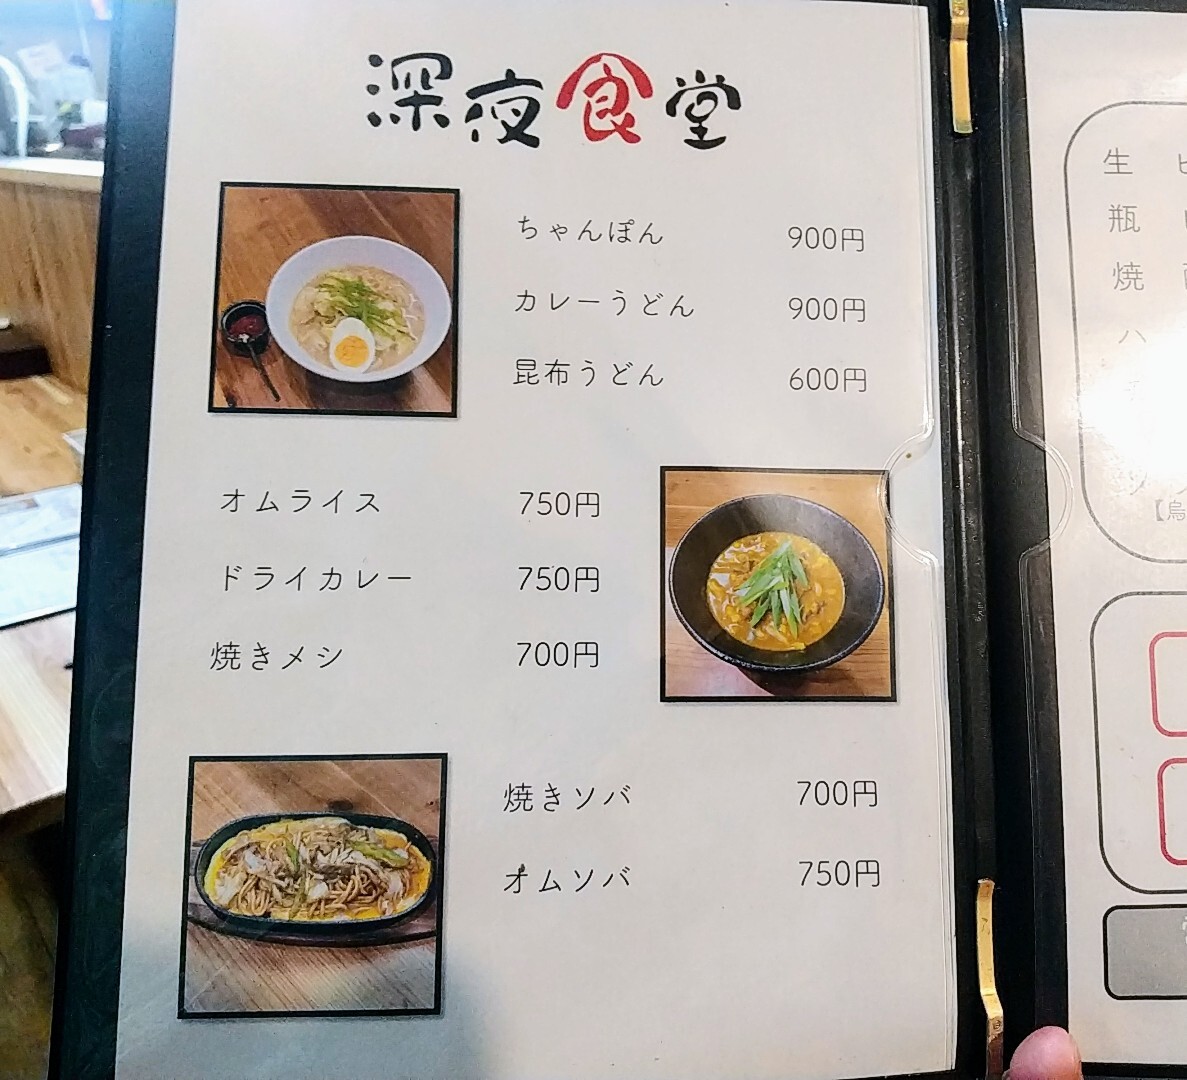 深夜食堂
ちゃんぽん 900円
カレーうどん 900円
昆布うどん 600円
オムライス 750円
ドライカレー 750円
焼きメシ 700円
焼きソバ 700円
オムソバ 750円
生
瓶
焼
ハ